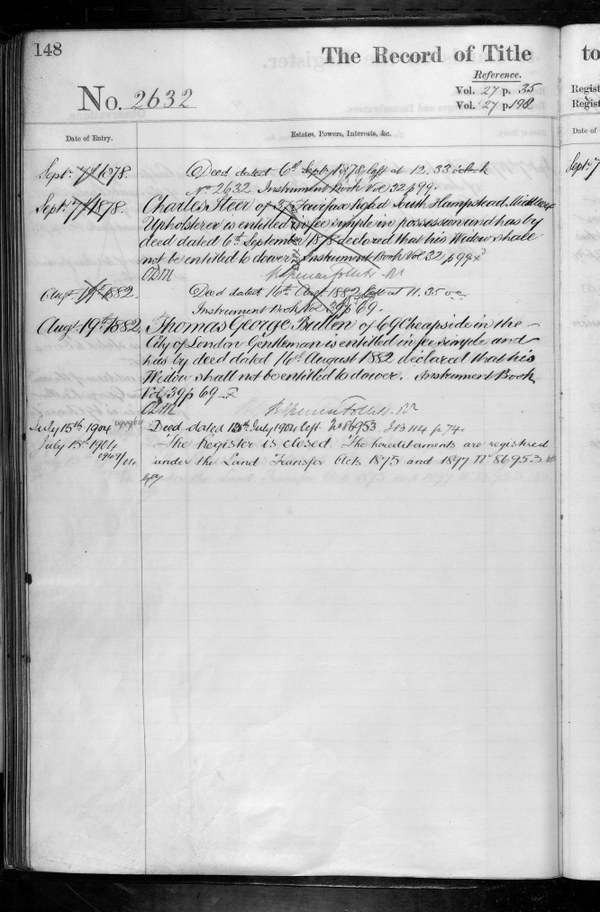 148
The Record of Title
to
Reference.
No. 2632
Vol. 27 p. 35
Vol. 27 p. 198
Regist
Regist
Date of Entry.
Estates, Powers, Interests, &c.
Date of
Sept. 7th 1878.
Deed dated 6th Sept. 1878 left at 12.33 o'clock
No. 2632 Instrument Book Vol 32 p 99.
Sept. 7th 1878.
Charles Steer of 37 Fairfax Road South Hampstead Middlesex
Sept. 7
Upholsterer is entitled in fee simple in possession and has by
deed dated 6th September 1878 declared that his Widow shall
not be entitled to dower Instrument Book Vol 32 p 99
Augt. 19th 1882.
Deed dated 16th Augt 1882 left at 11.35
Instrument Book Vol 39 p 69.
Augt 19th 1882
Thomas George Bullen of 69 Cheapside in the
City of London Gentleman is entitled in fee simple and
has by deed dated 16th August 1882 declared that his
Widow shall not be entitled to dower. Instrument Book
Vol 39 p 69
July 15th 1904
Deed dated 13th July 1904 left No 86953 IB 114 p. 74.
July 15th 1904
The Register is closed. The hereditaments are registered
under the Land Transfer Acts 1875 and 1897 No 86953